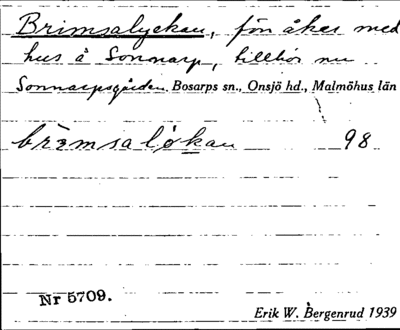 Brimsalyckan, förr åker med
hus å Sonnarp, tillhör nu
Sonnarpsgården. Bosarps sn., Onsjö hd., Malmöhus län
98
Nr 5709.
Erik W. Bergenrud 1939